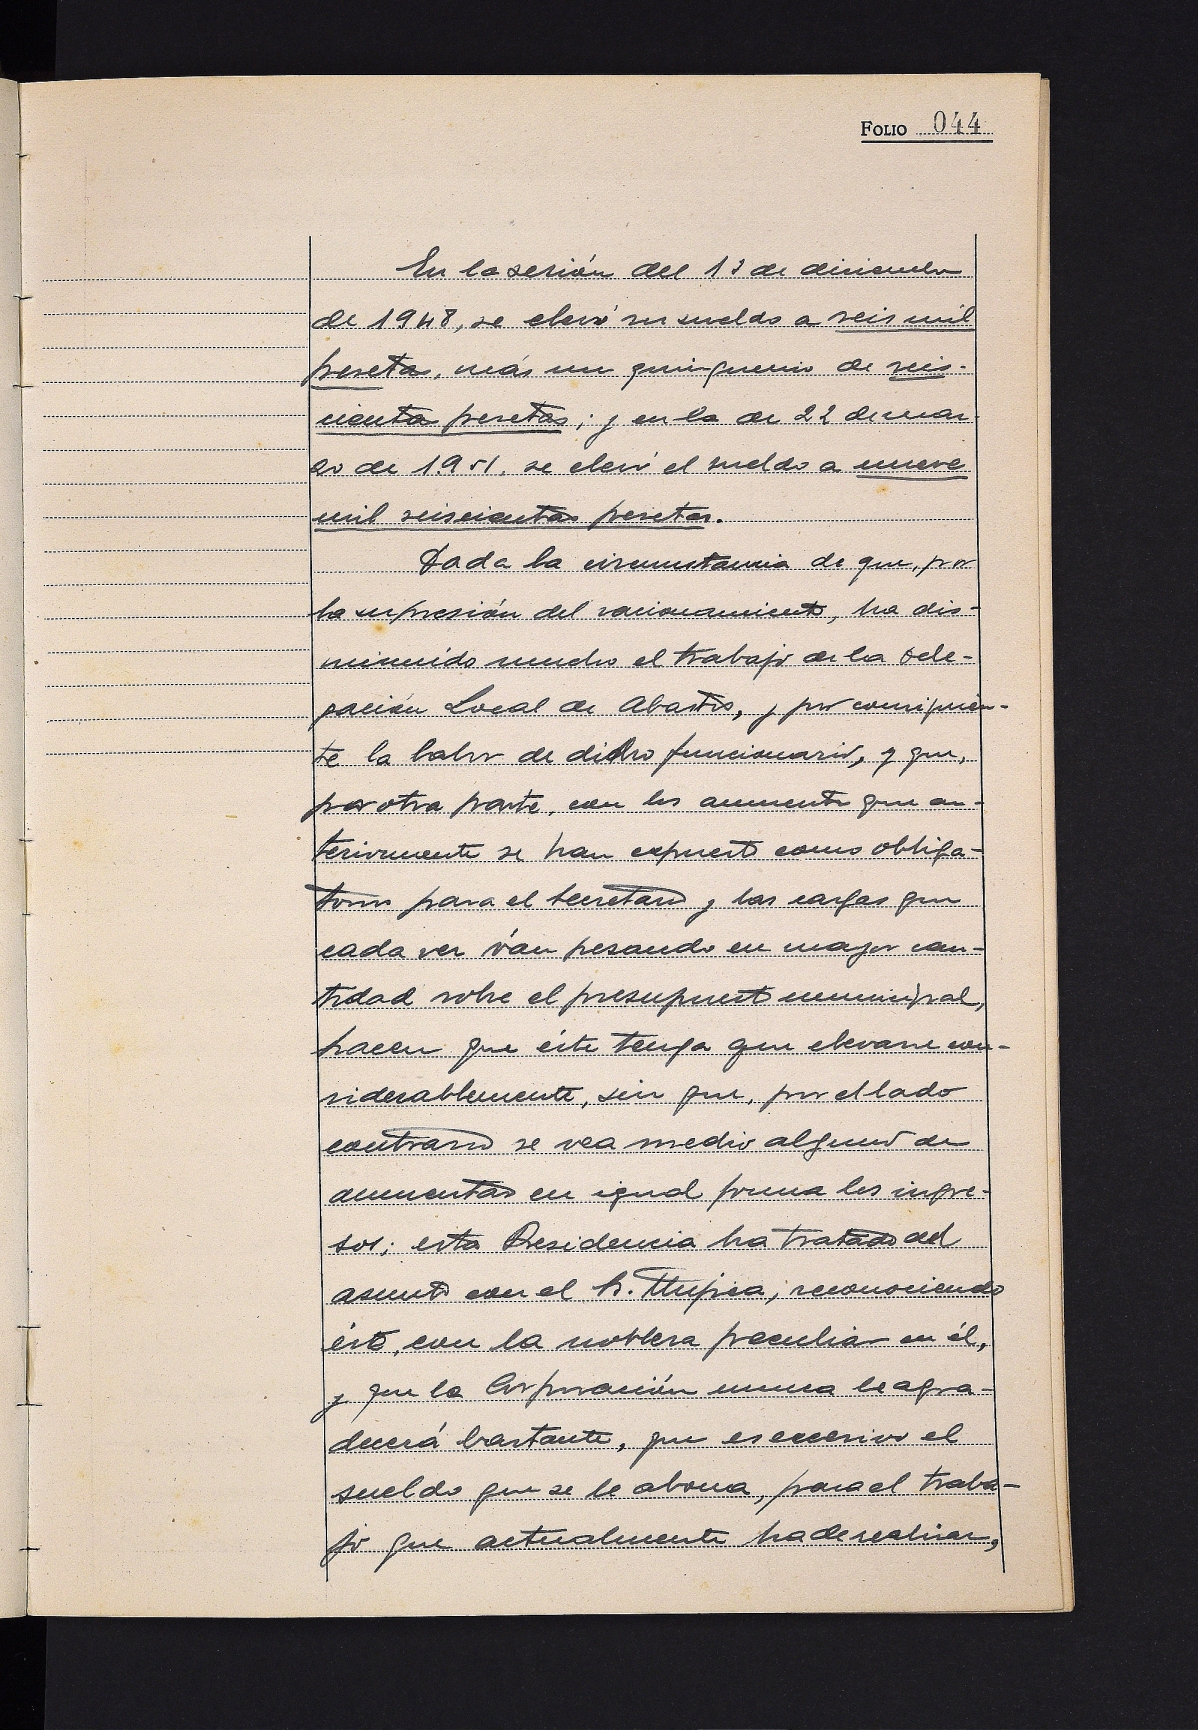 FOLIO 044
En la sesión del 13 de diciembre
de 1948, se elevó su sueldo a seis mil
pesetas, más un quinquenio de seis-
cientas pesetas; y en la de 22 de mar-
zo de 1.951, se elevó el sueldo a nueve
mil seiscientas pesetas.
Dada la circunstancia de que, por
la supresión del racionamiento, ha dis-
minuido mucho el trabajo de la Dele-
gación Local de Abastos, y por consiguien-
te la labor de dicho funcionario, y que,
por otra parte, con los aumentos que an-
teriormente se han expuesto como obliga-
torios para el Secretario y las cargas que
cada vez ván pesando en mayor can-
tidad sobre el presupuesto municipal,
hacen que éste tenga que elevarse con-
siderablemente, sin que, por el lado
contrario se vea medio alguno de
aumentar en igual forma los ingre-
sos; esta Presidencia ha tratado del
asunto con el Sr. Mujica, reconociendo
ésto, con la nobleza peculiar en él,
y que la Corporación nunca le agra-
decerá bastante, que es excesivo el
sueldo que se le abona, para el traba-
jo que actualmente ha de realizar,